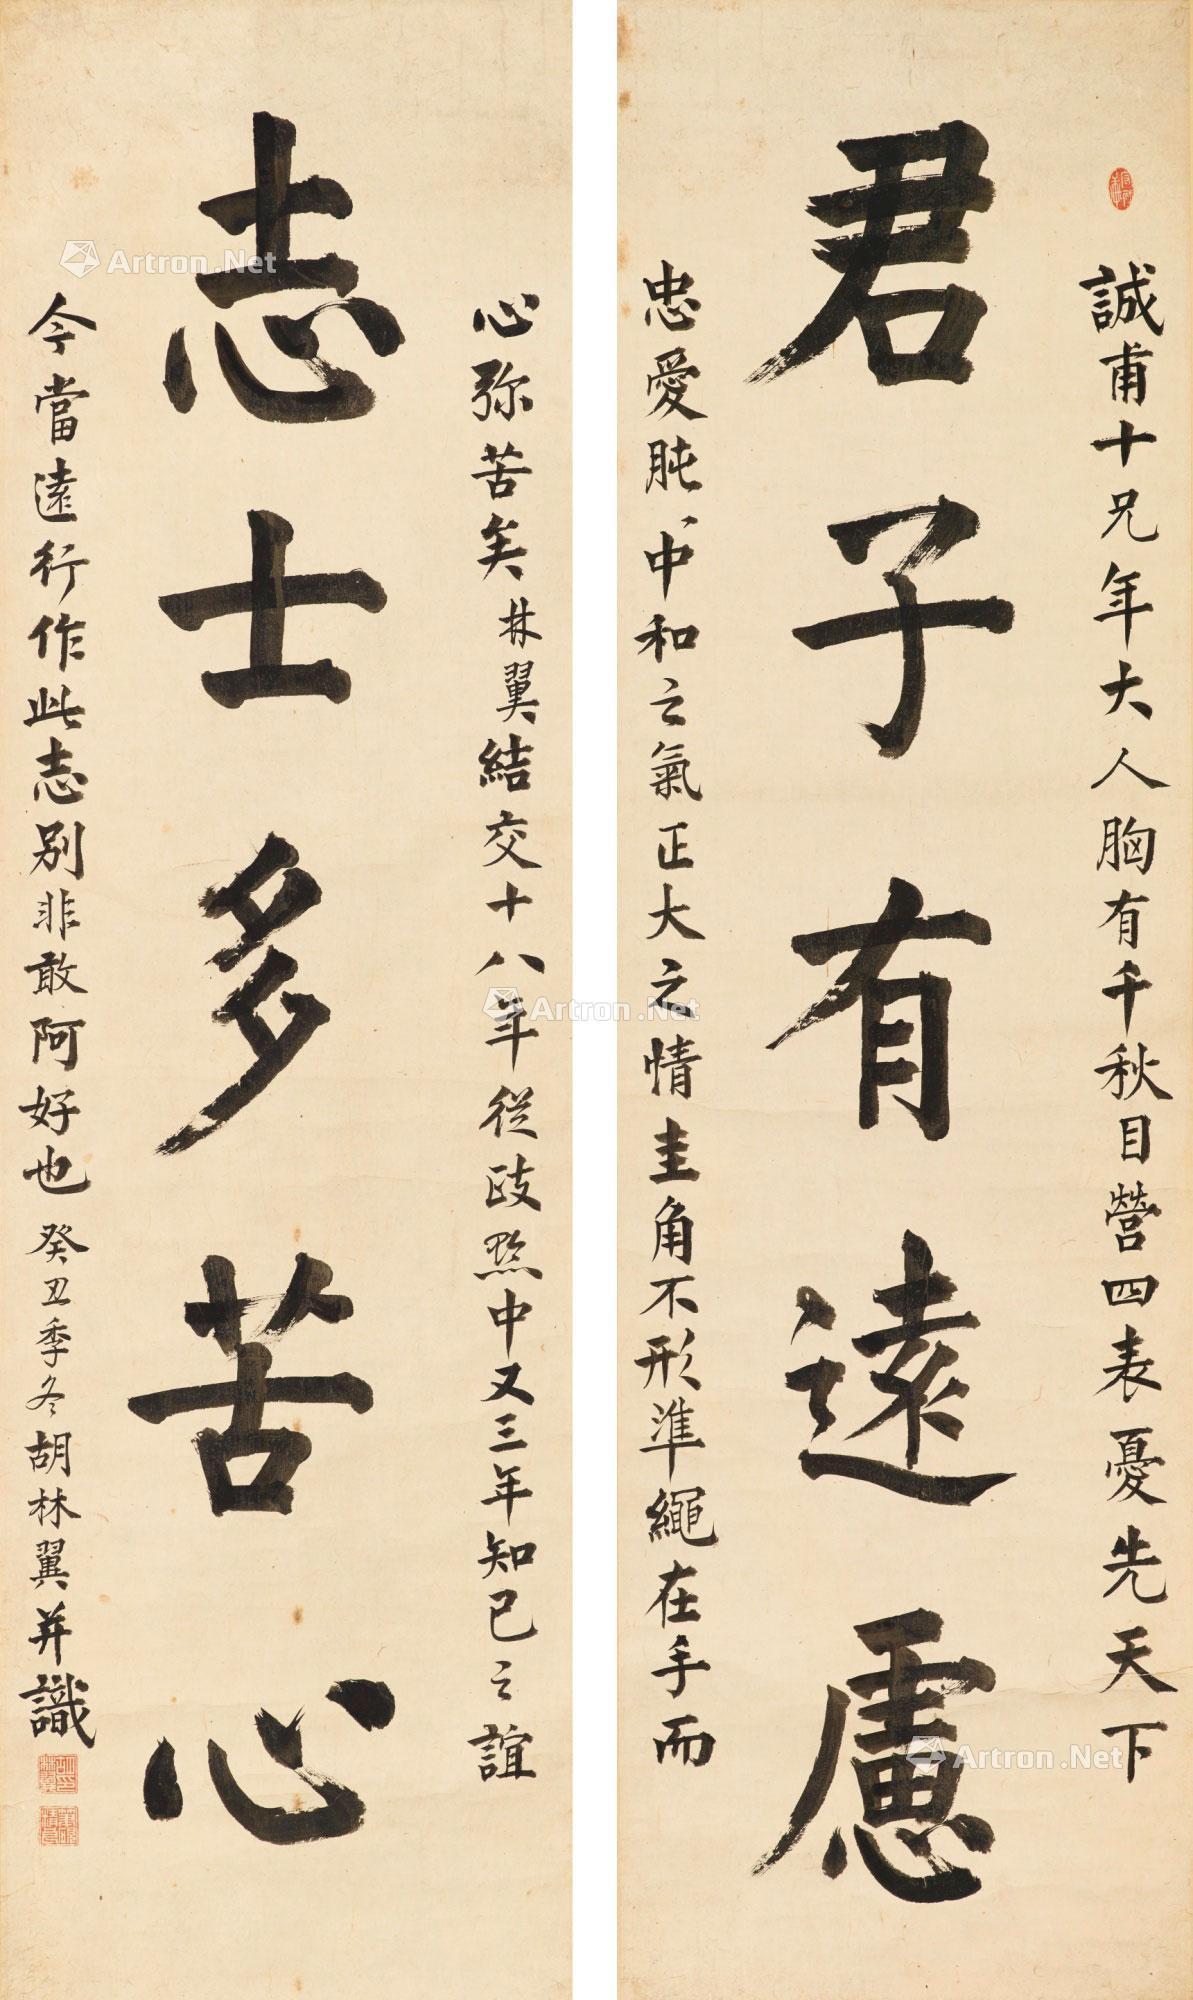 君子有遠慮
誠甫十兄年大人胸有千秋目營四表憂先天下
忠愛肫〻中和之氣正大之情圭角不形準繩在手而
志士多苦心
心弥苦矣林翼結交十八年從歧黔中又三年知已之誼
今當遠行作此志別非敢阿好也癸丑季冬胡林翼并識
Artron.Net
Artron.Net
Artron.Net